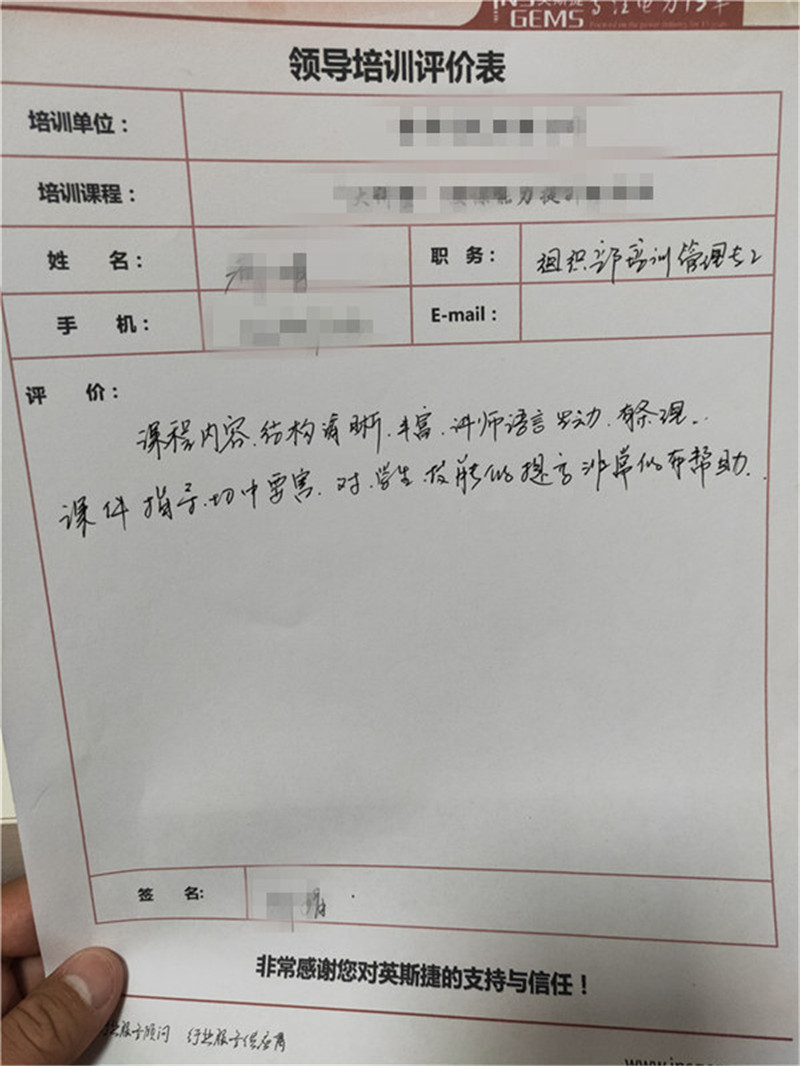 GEMS
领导培训评价表
培训单位：
培训课程：
姓 名： 职 务： 组织部培训管理专工
手 机： E-mail：
评 价：
课程内容、结构清晰、丰富、讲师语言生动、有条理、
课件指导、切中要害、对学生技能的提高非常的有帮助.
签 名:
非常感谢您对英斯捷的支持与信任！
行业服务供应商